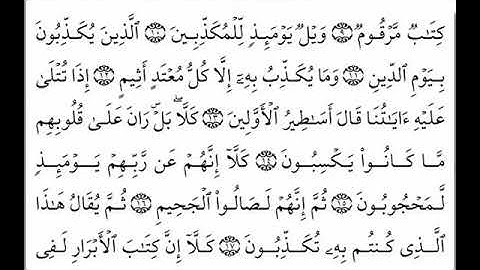 كِتَٰبٌ مَّرْقُومٌ ٩ وَيْلٌ يَوْمَئِذٍ لِّلْمُكَذِّبِينَ ١٠ الَّذِينَ يُكَذِّبُونَ
بِيَوْمِ الدِّينِ ١١ وَمَا يُكَذِّبُ بِهِۦٓ إِلَّا كُلُّ مُعْتَدٍ أَثِيمٍ ١٢ إِذَا تُتْلَىٰ
عَلَيْهِ ءَايَٰتُنَا قَالَ أَسَٰطِيرُ الْأَوَّلِينَ ١٣ كَلَّا ۖ بَلْ ۜ رَانَ عَلَىٰ قُلُوبِهِم
مَّا كَانُوا۟ يَكْسِبُونَ ١٤ كَلَّآ إِنَّهُمْ عَن رَّبِّهِمْ يَوْمَئِذٍ
لَّمَحْجُوبُونَ ١٥ ثُمَّ إِنَّهُمْ لَصَالُوا۟ الْجَحِيمِ ١٦ ثُمَّ يُقَالُ هَٰذَا
الَّذِي كُنتُم بِهِۦ تُكَذِّبُونَ ١٧ كَلَّآ إِنَّ كِتَٰبَ الْأَبْرَارِ لَفِي